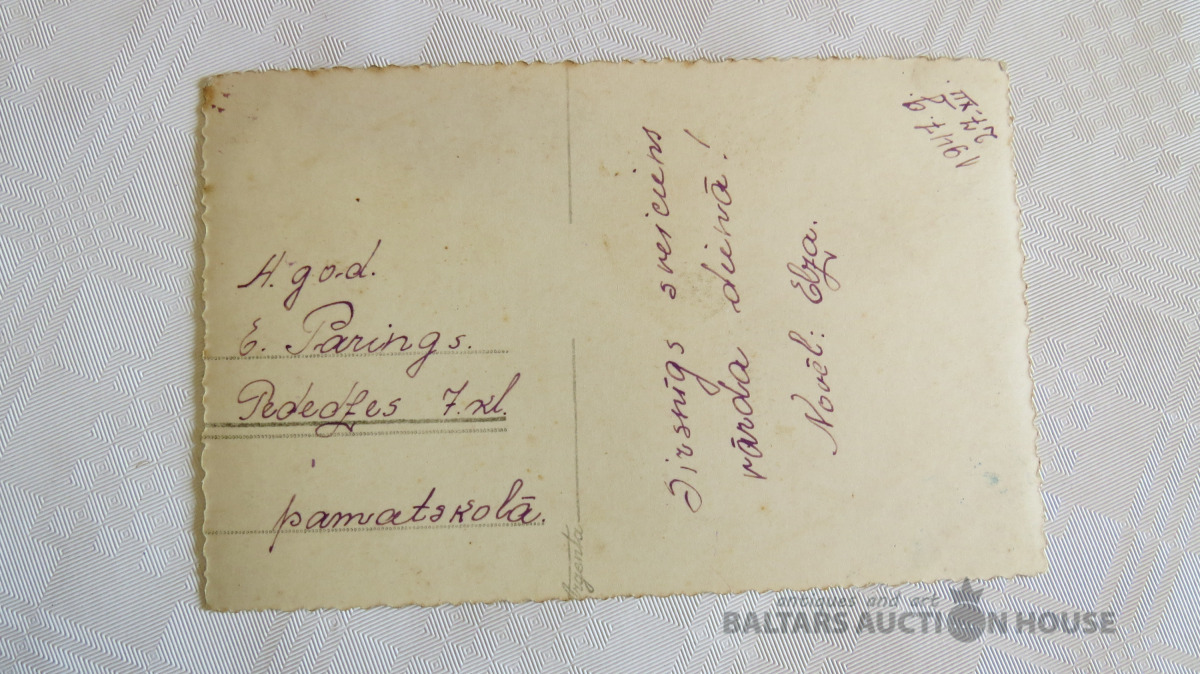 A. god.
E. Parings.
Pededzes 7. kl.
pamatskolā.
Sirsnīgs sveiciens
vārda dienā!
Novēl: Elza.
1947. g.
27. XII
Argenta
antiques and art
BALTARS AUCTION HOUSE